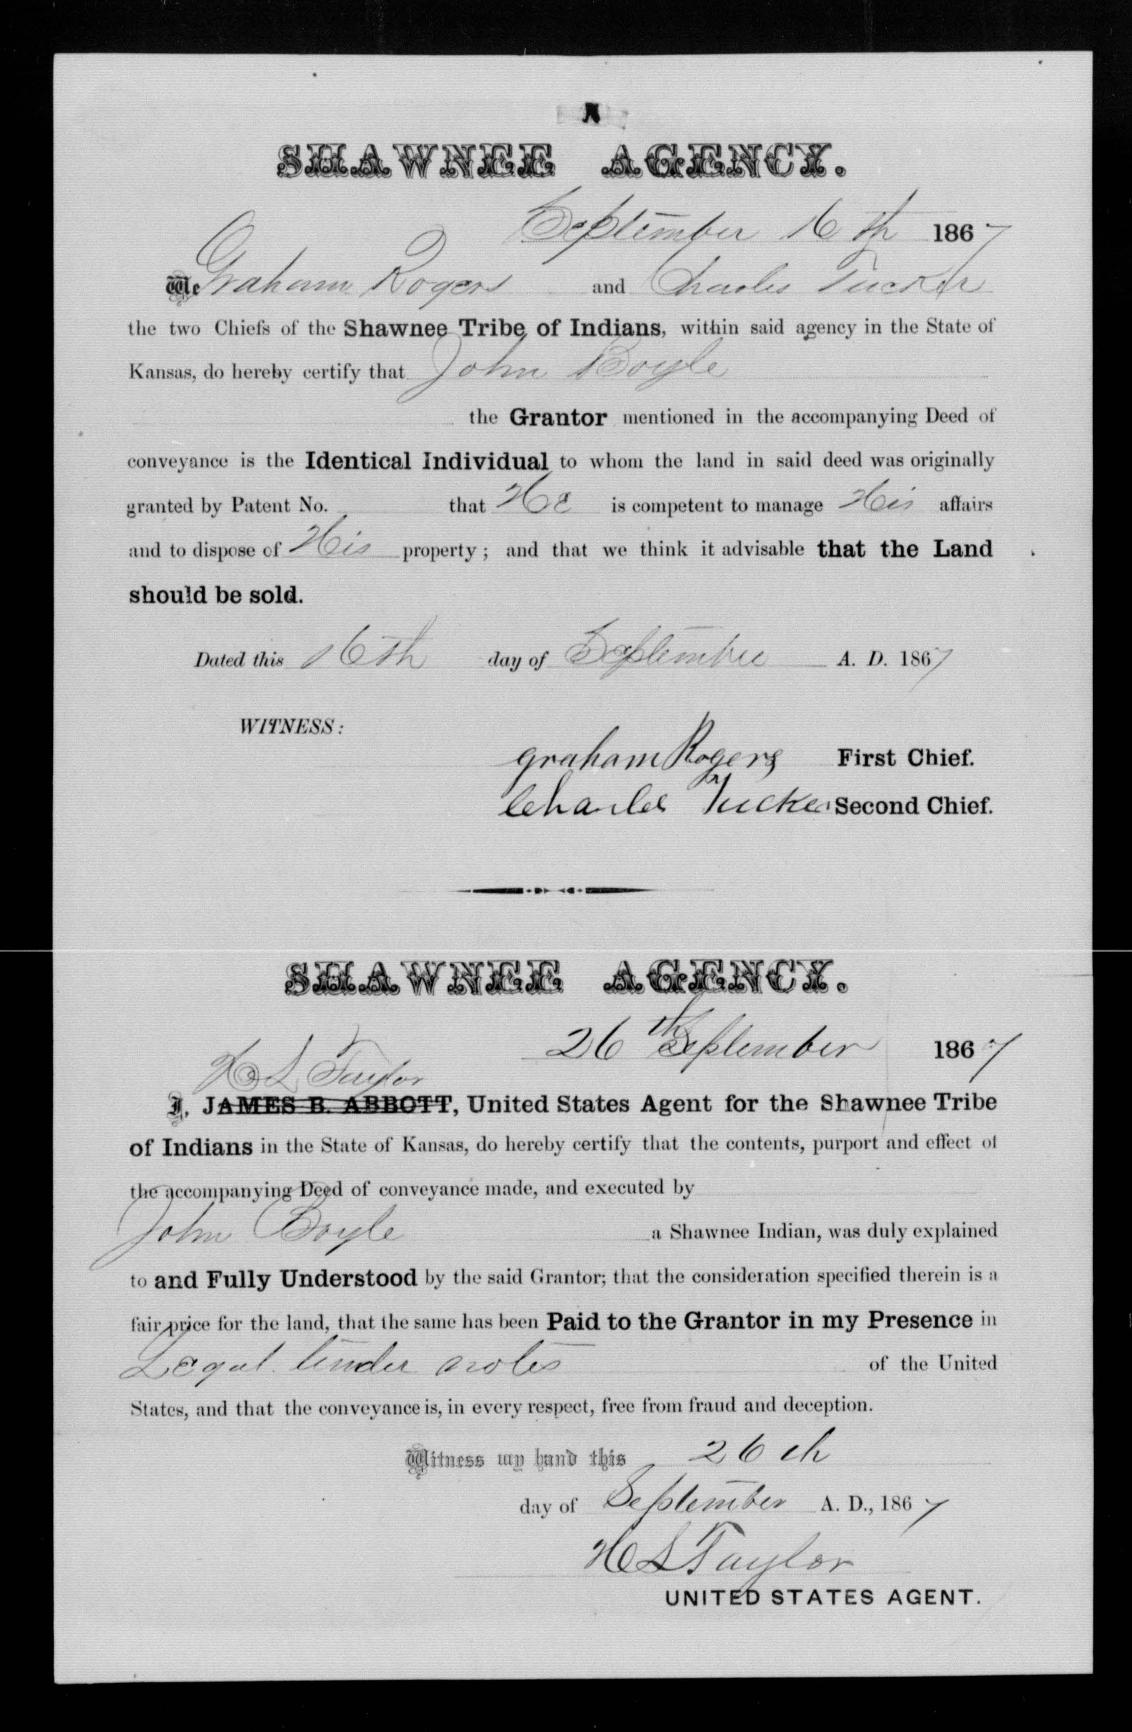 SHAWNEE AGENCY.
September 16th 1867
We Graham Rogers and Charles Tucker
the two Chiefs of the Shawnee Tribe of Indians, within said agency in the State of
Kansas, do hereby certify that John Boyle
the Grantor mentioned in the accompanying Deed of
conveyance is the Identical Individual to whom the land in said deed was originally
granted by Patent No. that He is competent to manage His affairs
and to dispose of His property; and that we think it advisable that the Land
should be sold.
Dated this 16th day of September A. D. 1867
WITNESS:
Graham Rogers First Chief.
Charles Tucker Second Chief.
SHAWNEE AGENCY.
26th September 1867
H L Taylor
I, JAMES B. ABBOTT, United States Agent for the Shawnee Tribe
of Indians in the State of Kansas, do hereby certify that the contents, purport and effect of
the accompanying Deed of conveyance made, and executed by
John Boyle a Shawnee Indian, was duly explained
to and Fully Understood by the said Grantor; that the consideration specified therein is a
fair price for the land, that the same has been Paid to the Grantor in my Presence in
Legal tender notes of the United
States, and that the conveyance is, in every respect, free from fraud and deception.
Witness my hand this 26th
day of September A. D., 1867
H L Taylor
UNITED STATES AGENT.